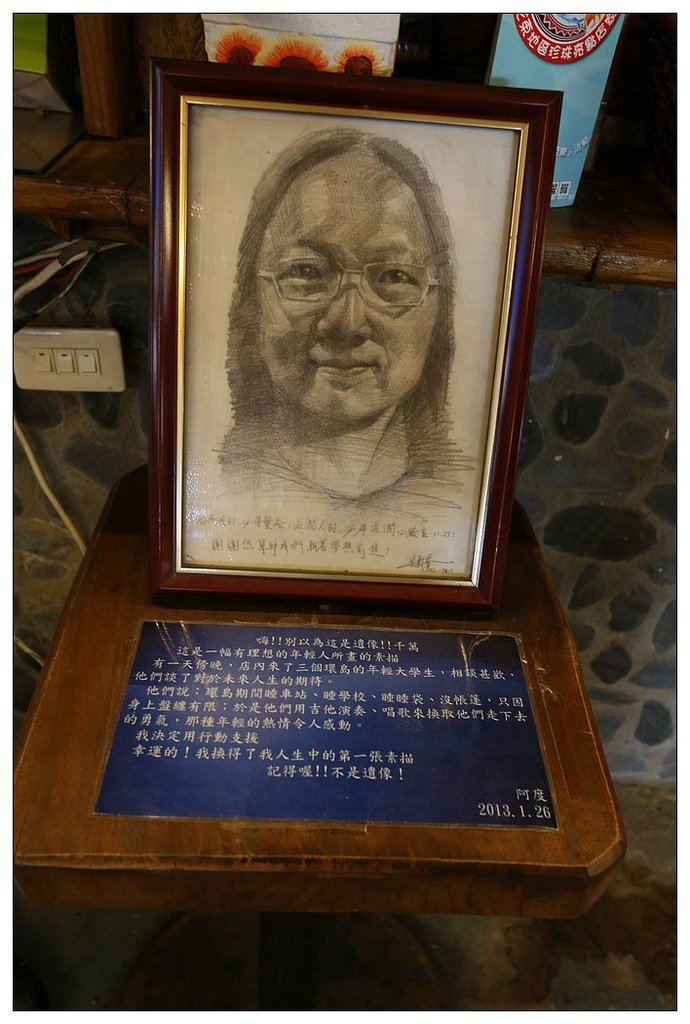 東地區珍珠亮點店家
謝謝您幫助我們朝著夢想前進！
嗨!!別以為這是遺像!!千萬
這是一幅有理想的年輕人所畫的素描
有一天傍晚，店內來了三個環島的年輕大學生，相談甚歡，
他們談了對於未來人生的期待。
他們說：環島期間睡車站、睡學校、睡睡袋、沒帳蓬，只因
身上盤纏有限；於是他們用吉他演奏、唱歌來換取他們走下去
的勇氣，那種年輕的熱情令人感動。
我決定用行動支援
幸運的！我換得了我人生中的第一張素描
記得喔!!不是遺像！
阿度
2013.1.26